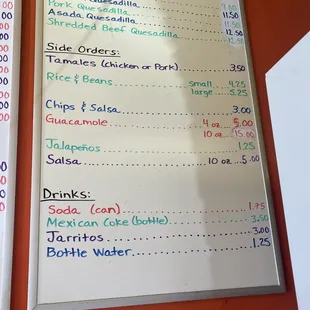 Quesadilla
Pork Quesadilla
Asada Quesadilla 11.50
Shredded Beef Quesadilla 12.50
Side Orders:
Tamales (Chicken or Pork) 3.50
Rice & Beans small 4.75
large 5.25
Chips & Salsa 3.00
Guacamole 4 oz 5.00
10 oz 15.00
Jalapeños 1.25
Salsa 10 oz 5.00
Drinks:
Soda (can) 1.75
Mexican Coke (bottle) 3.50
Jarritos 3.00
Bottle Water 1.25